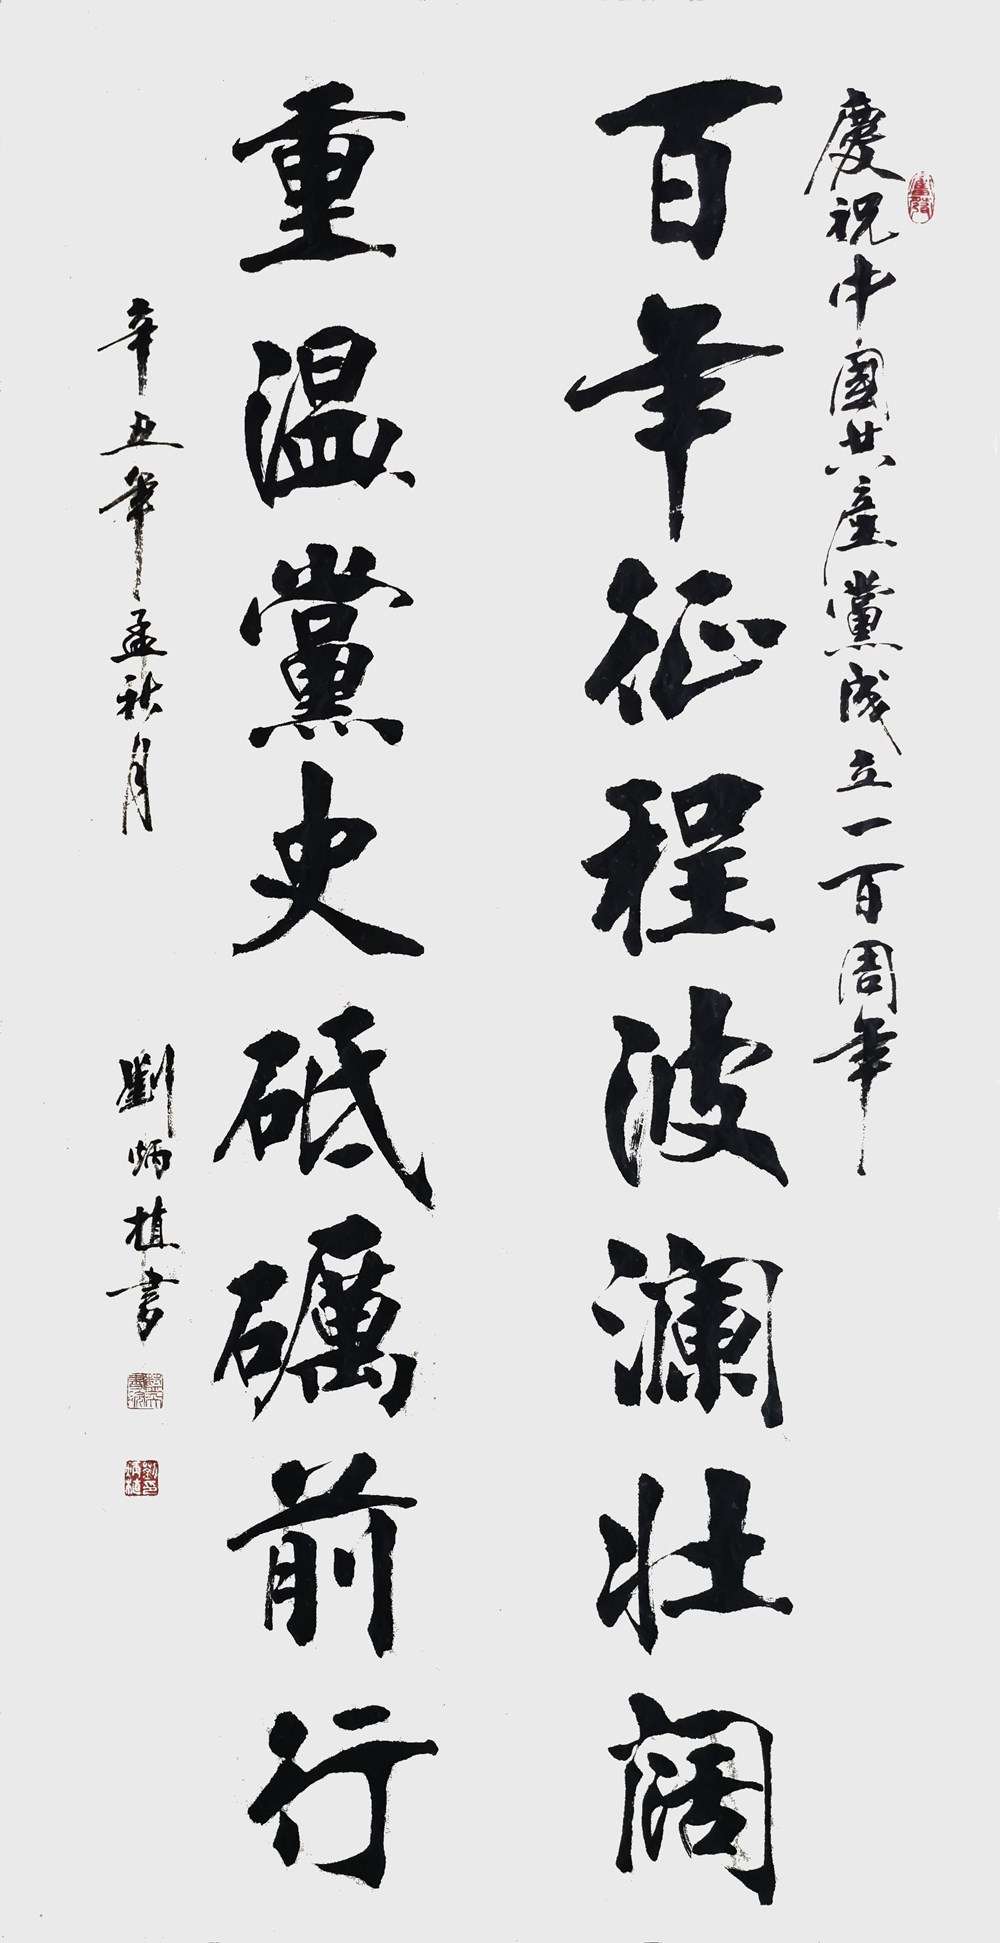 慶祝中國共產黨成立一百周年
百年征程波澜壮阔
重温黨史砥礪前行
辛丑年孟秋月
劉炳植書